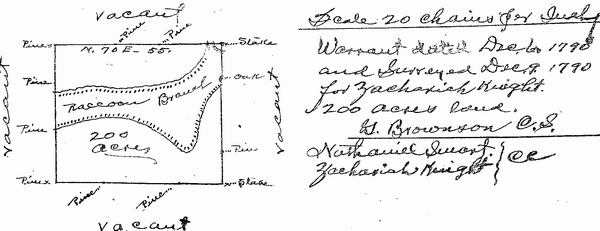 Vacant
Pine Pine
Pinex N. 70 E. 55. Stake
Pine x Oak
Raccoon Branch
Vacant
Vacant
Pine x
200
acres
x Pine
Pinex x Stake
Pine Pine
Vacant
Scale 20 chains per Inch
Warrant dated Dec 6 1790
and Surveyed Dec 9 1790
for Zachariah Knight.
200 acres land.
Brownson C.S.
Nathaniel Smart
Zachariah Knight } CC